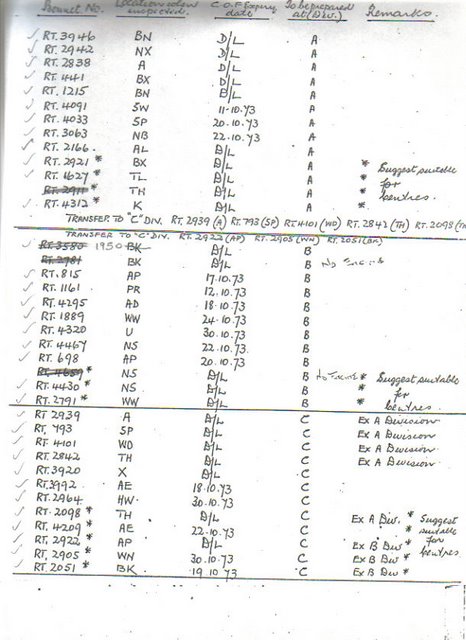 Bonnet No. Location when inspected. C.O.F. Expiry date To be prepared at (Div.) Remarks.
✓ RT. 3946 BN D/L A
✓ RT. 2942 NX D/L A
✓ RT. 2838 A D/L A
✓ RT. 441 BX D/L A
✓ RT. 1215 BN D/L A
✓ RT. 4091 SW 11-10.73 A
✓ RT. 4033 SP 20.10.73 A
✓ RT. 3063 NB 22.10.73 A
✓ RT. 2166 AL D/L A
✓ RT. 2921 * BX D/L A * Suggest suitable
✓ RT. 1627 * TL D/L A * for
RT. 2911 * TH D/L A * centres.
✓ RT. 4312 * K D/L A
TRANSFER TO "C" DIV. RT. 2939 (A) RT. 793 (SP) RT 4101 (WD) RT. 2842 (TH) RT. 2098 (TH)
TRANSFER TO "C" DIV. RT. 2922 (AP) RT. 2905 (WN) RT. 2051 (BK)
✓ RT. 3580 1950 BK D/L B
RT. 2981 BK D/L B No Engine
✓ RT. 815 AP 17.10.73 B
✓ RT. 1161 PR 12.10.73 B
✓ RT. 4295 AD 18.10.73 B
✓ RT. 1889 WW 24.10.73 B
✓ RT. 4320 U 30.10.73 B
✓ RT. 4467 NS 22.10.73 B
✓ RT. 698 AP 20.10.73 B
RT. 4659 * NS D/L B No Engine * Suggest suitable
✓ RT. 4430 * NS D/L B * for
✓ RT. 2791 * WW D/L B * centres.
✓ RT 2939 A D/L C Ex A Division
✓ RT, 793 SP D/L C Ex A Division
✓ RT. 4101 WD D/L C Ex A Division
✓ RT. 2842 TH D/L C Ex A Division
✓ RT. 3920 X D/L C
✓ RT. 3992 AE 18.10.73 C
✓ RT. 2964 HW. 30.10.73 C
✓ RT. 2098 * TH D/L C Ex A Div. * Suggest
✓ RT. 4209 * AE 22.10.73 C * suitable
✓ RT. 2922 * AP D/L C Ex B Div * for
✓ RT. 2905 * WN 30.10.73 C Ex B Div * centres
✓ RT. 2051 * BK 19.10.73 C Ex B Div *